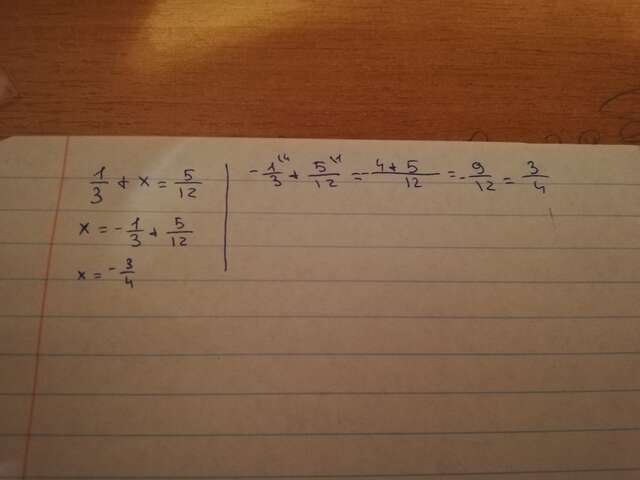 1/3 + x = 5/12
x = -1/3 + 5/12
x = -3/4
-1/3 \4 + 5/12 \1 = -4+5/12 = -9/12 = 3/4